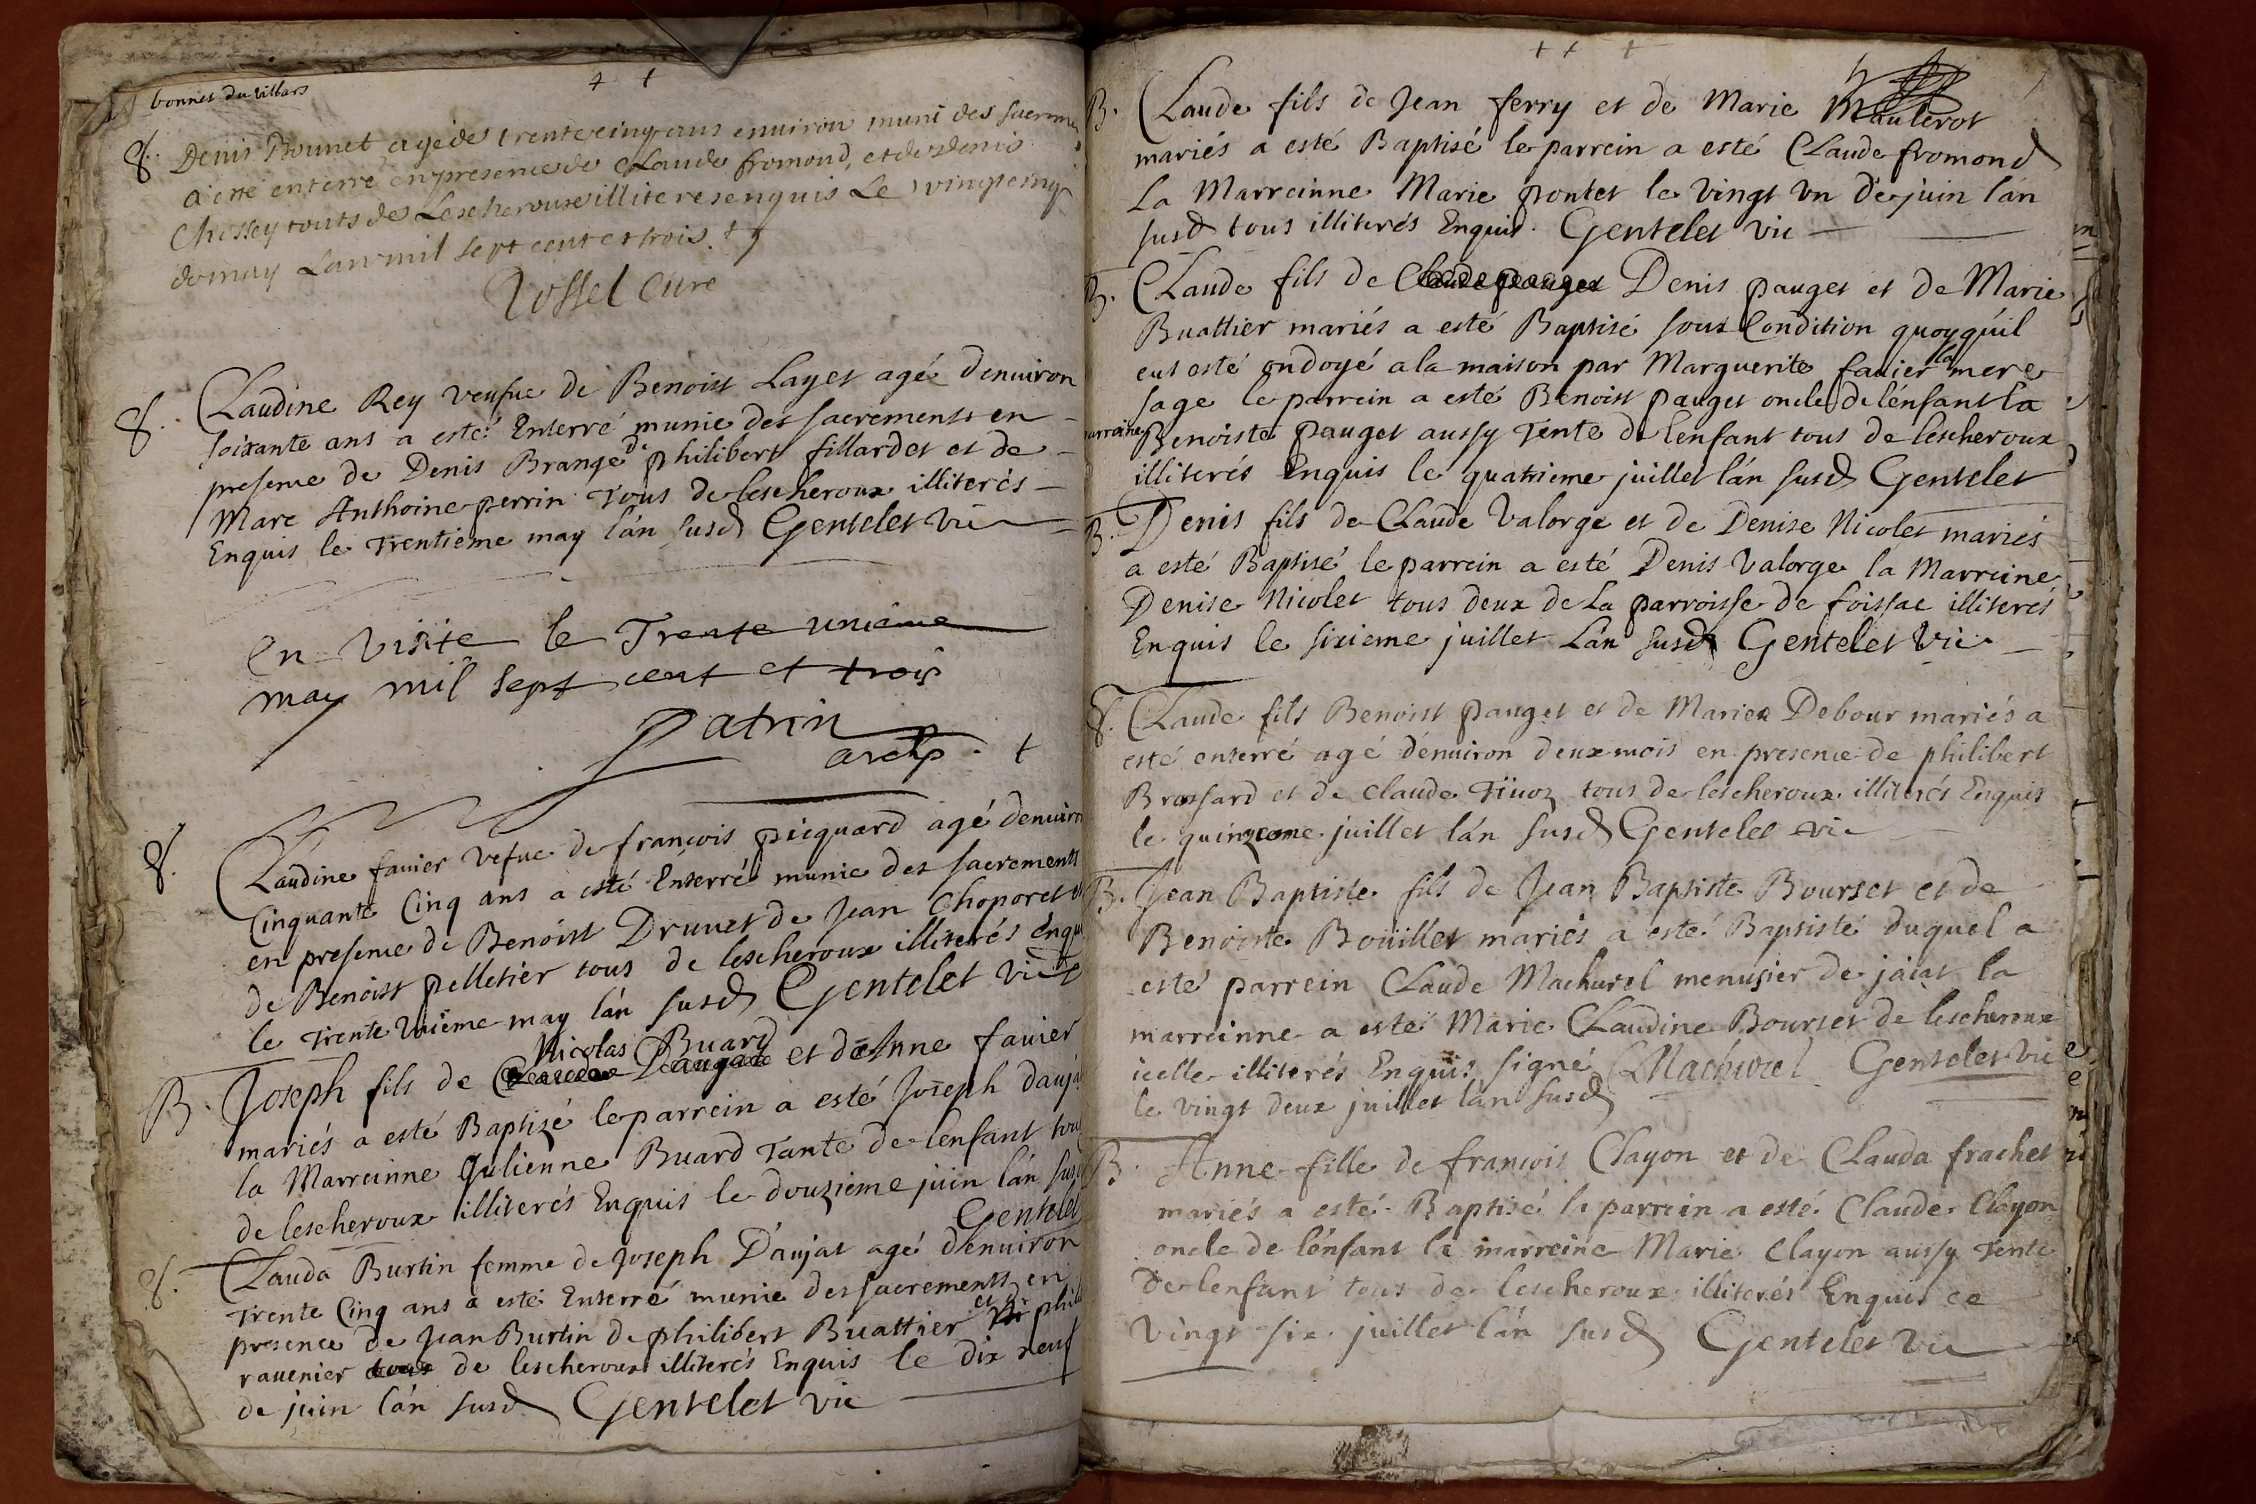 bonnet du villars
S. Denis Bounet agé de trente cinq ans environ muni des sacrem
a etté enterré en presence de Claude fromond, et de denis
Chossey touts de Lescheroux illiteres enquis Le vingt cinq
de may Lan mil sept cent et trois
Rossel Curé
S. Claudine Rey veufue de Benoist Layet agé denuiron
soixante ans a esté Enterré munie des sacrements en
presence de Denis Brange de philibert fillardet et de
Marc Anthoine perrin Tous de lescheroux illiterés
Enquis le Trentième may l'an susd Gentelet Vic
En Visite le Trente unième
may mil sept cent et trois
Patrin
archp.
S. Claudine fauier vefue de françois picquard agé denuiro
Cinquante Cinq ans a esté Enterré munie des sacrements
en presence de Benoist Druuet de Jean Choporet et
de Benoist pelletier tous de lescheroux illiterés enqu
le Trente Unième may l'an susd Gentelet vic
Nicolas Buard
B. Joseph fils de et de Anne fauier
mariés a esté Baptizé le parrein a esté Joseph dauja
la Marreinne Julienne Buard Tante de lenfant tou
de lescheroux illiterés Enquis le douzieme juin l'an sus
Gentelet
S. Clauda Burtin femme de Joseph D'aujat agé d'enuiron
Trente Cinq ans a esté Enterré munie des sacrements en
presence de Jean Burtin de philibert Buattier et de phili
rauenier tous de lescheroux illiterés Enquis le dix neuf
de juin l'an susd Gentelet vic
B. Claude fils de Jean ferry et de Marie Maulerot
mariés a esté Baptisé le parrein a esté Claude fromond
la Marreinne Marie pontet le vingt vn de juin l'an
susd tous illiterés Enquis. Gentelet vic
B. Claude fils de Denis pauget et de Marie
Buattier mariés a esté Baptisé sous Condition quoyqu'il
eut esté ondoyé a la maison par Marguerite fauier la mere
sage le parrein a esté Benoist pauget oncle de l'énfant la
marreine Benoiste pauget aussy Tente de lenfant tous de lescheroux
illiterés Enquis le quatrieme juillet l'an susd Gentelet
B. Denis fils de Claude Valorge et de Denise Nicolet mariés
a esté Baptisé le parrein a esté Denis Valorge la Marreine
Denise Nicolet tous deux de La parroisse de foissac illiterés
Enquis le sixieme juillet Lan susd Gentelet Vic
S. Claude fils Benoist pauget et de Marie Debour mariés a
esté enterré agé d'enuiron deux mois en presence de philibert
Brossard et de Claude Tiuoz tous de lescheroux illiterés Enquis
le quinzeme juillet l'an susd Gentelet vic
B. Jean Baptiste fils de Jean Baptiste Bourset et de
Benoiste Bouillet mariés a esté Baptisté duquel a
esté parrein Claude Machurel menusier de jaiat la
marreinne a esté Marie Claudine Bourset de lescheroux
icelle illiterés Enquis signé C Machurel Gentelet vic
le vingt deux juillet l'an susd
B. Anne fille de francois Clayon et de Clauda frachet
mariés a esté Baptisé le parrein a esté Claude Clayon
oncle de l'énfant la marreine Marie Clayon aussy Tente
de lenfant tous de lescheroux illiterés Enquis ce
vingt six juillet l'an susd Gentelet vic